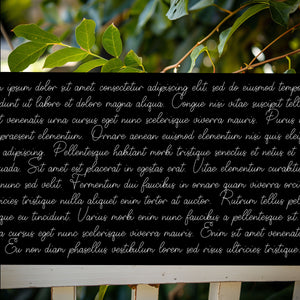 ipsum dolor sit amet, consectetur adipiscing elit, sed do eiusmod tempor
dunt ut labore et dolore magna aliqua. Congue nisi vitae suscipit tell
t venenatis urna cursus eget nunc scelerisque viverra mauris. Purus
praesent elementum. Ornare aenean euismod elementum nisi quis eleif
adipiscing. Pellentesque habitant morbi tristique senectus et netus et
uada. Sit amet est placerat in egestas erat. Vitae elementum curabitur
nunc sed velit. Fermentum dui faucibus in ornare quam viverra orci
ricies tristique nulla aliquet enim tortor at auctor. Rutrum tellus pell
que eu tincidunt. Varius morbi enim nunc faucibus a pellentesque sit.
a cursus eget nunc scelerisque viverra mauris. Enim sit amet venenatis
Eu non diam phasellus vestibulum lorem sed risus ultricies tristique